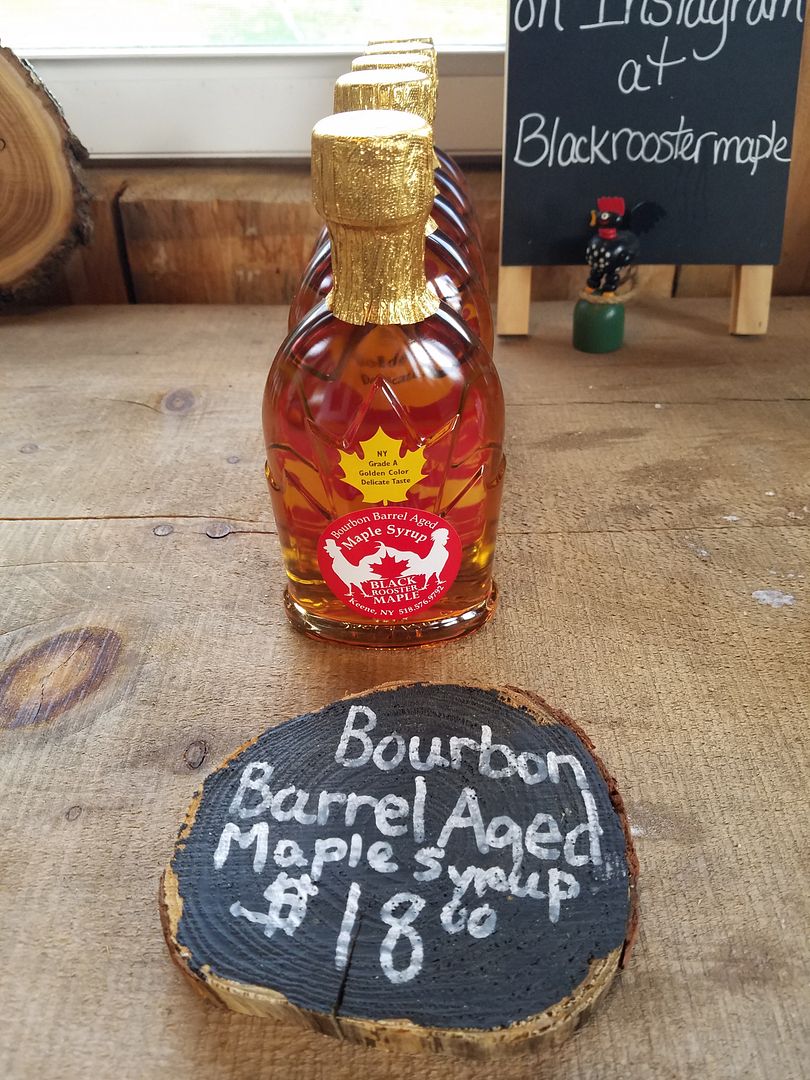 on Instagram
at
Blackroostermaple
NY
Grade A
Golden Color
Delicate Taste
Bourbon Barrel Aged
Maple Syrup
BLACK
ROOSTER
MAPLE
Keene, NY 518.576.9792
Bourbon
Barrel Aged
Maple Syrup
$18.00